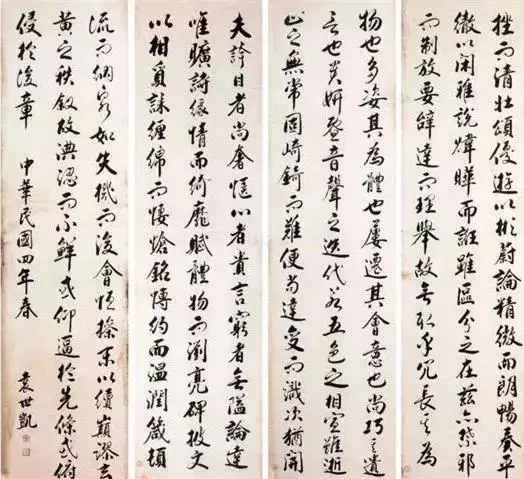 挫而清壯頌優游以彬蔚論精微而朗暢奏平
徹以閑雅說煒曄而誑雖區分之在茲亦禁邪
而制放要辭達而理舉故無取乎冗長其為
物也多姿其為體也屢遷其會意也尚巧其遣
言也貴妍暨音聲之迭代若五色之相宣雖逝
止之無常固崎錡而難便苟達變而識次猶開
夫誇目者尚奢愜心者貴言窮者無隘論達
唯曠詩緣情而綺靡賦體物而瀏亮碑披文
以相質誄纏綿而悽愴銘博約而溫潤箴頓
流而納泉如失機而後會恒操末以續顛謬玄
黃之秩叙故淟涊而不鮮或仰逼於先條或俯
侵於後章 中華民國四年春 袁世凱